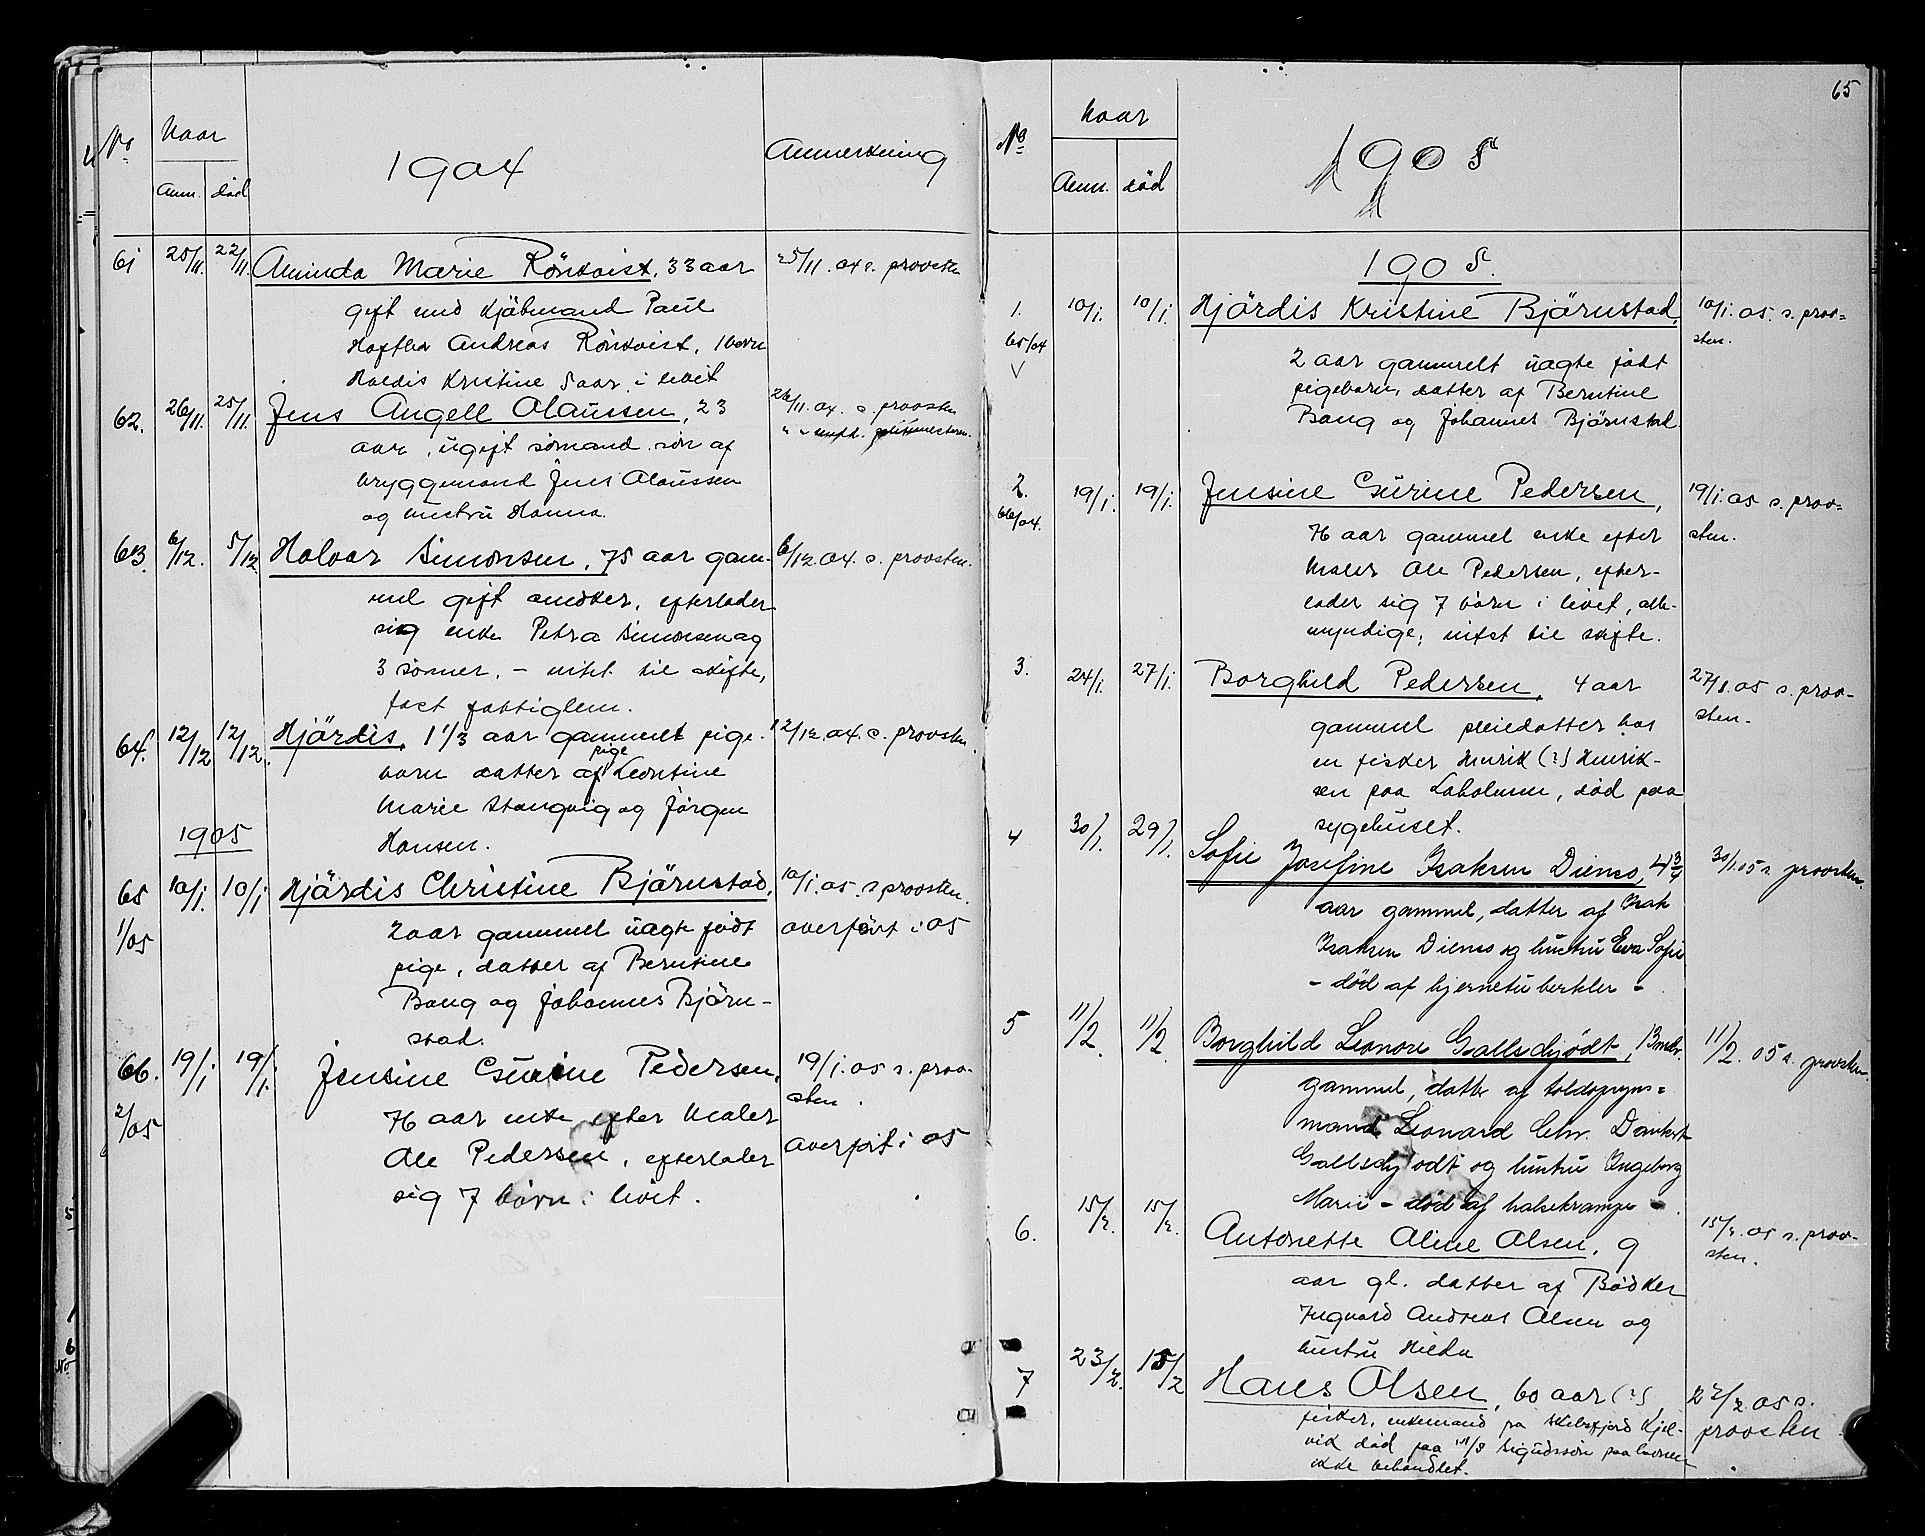 No
Naar
Anm. død
1904
Anmerkning
61 25/11. 22/11. Aminda Marie Rönkvist, 33 aar 25/11. 04 s. provsten
gift med kjöbmand Paul
Andreas Rönkvist, 1 barn
Kristine 5 aar i livet
62. 26/11. 25/11. Jens Angell Olaussen, 23 26/11. 04. s. provsten
aar, ugift sömand sön af
bryggemand Jens Olaussen
og hustru Hanna.
63. 6/12. 5/12. Halvar Simonsen, 75 aar gam- 6/12. 04. s. provsten.
mel gift snedker, efterlader
sig enke Petra Simonsen og
3 sönner. - intet til skifte,
fast fattiglem.
64. 12/12 12/12. Hjärdis, 1 1/3 aar gammelt pige- 12/12. 04. s. provsten.
pige
barn datter af Leontine
Marie Stangvig og Jörgen
Hansen.
1905
65 10/1. 10/1 Hjärdis Christine Bjärnstad, 10/1. 05 s provsten.
1/05 2 aar gammel uægte födt overfört i 05
pige, datter af Berntine
Bang og Johannes Bjärn-
stad.
66. 19/1 19/1. Jensine Gurine Pedersen, 19/1. 05 s. prov-
sten.
2/05 76 aar enke efter Maler overfört i 05
Ole Pedersen, efterlader
sig 7 börn i livet.
65
No
Naar
Anm. död
1905
1905.
1. 10/1. 10/1. Hjärdis Kristine Bjärnstad, 10/1. 05. s. prov=
sten.
65/04 2 aar gammelt uægte födt
pigebarn, datter af Berntine
Bang og Johannes Bjärnstad.
2. 19/1. 19/1. Jensine Gurine Pedersen, 19/1. 05 s. prov=
66/04. 76 aar gammel enke efter sten.
Maler Ole Pedersen, efter-
lader sig 7 börn i livet, alle
myndige; intet til skifte.
3. 24/1. 27/1. Borghild Pedersen, 4 aar 27/1. 05 s. prov-
sten.
gammel pleiedatter hos
en fisker Henrik (?) Henrik-
sen paa Laholmen, död paa
sygehuset.
4 30/1. 29/1. Sofie Josefine Isaksen Dienes, 4 3/4 30/1. 05 s. provsten.
aar gammel, datter af Isak
Isaksen Dienes og hustru Eva Sofie
- död af hjernetuberkler -
5 11/2. 11/2. Borghild Leonore Gallschjödt, 13 mdr. 11/2. 05 s. provsten.
gammel, datter af toldopsyns=
mand Leonard Chr. Dankert
Gallschjödt og hustru Ingeborg
Marie - död af halsekrampe -
6. 15/2. 15/2. Antonette Oline Olsen, 9 15/2. 05 s. prov-
sten.
aar gl. datter af Bödker
Ingvard Andreas Olsen og
hustru Hilda
7 23/2. 15/2 Hans Olsen, 60 aar (?) 22/2 05 s.
fisker, enkemand fra Kjel- provsten
vik död paa Sigurdssön paa
ikke behandlet.